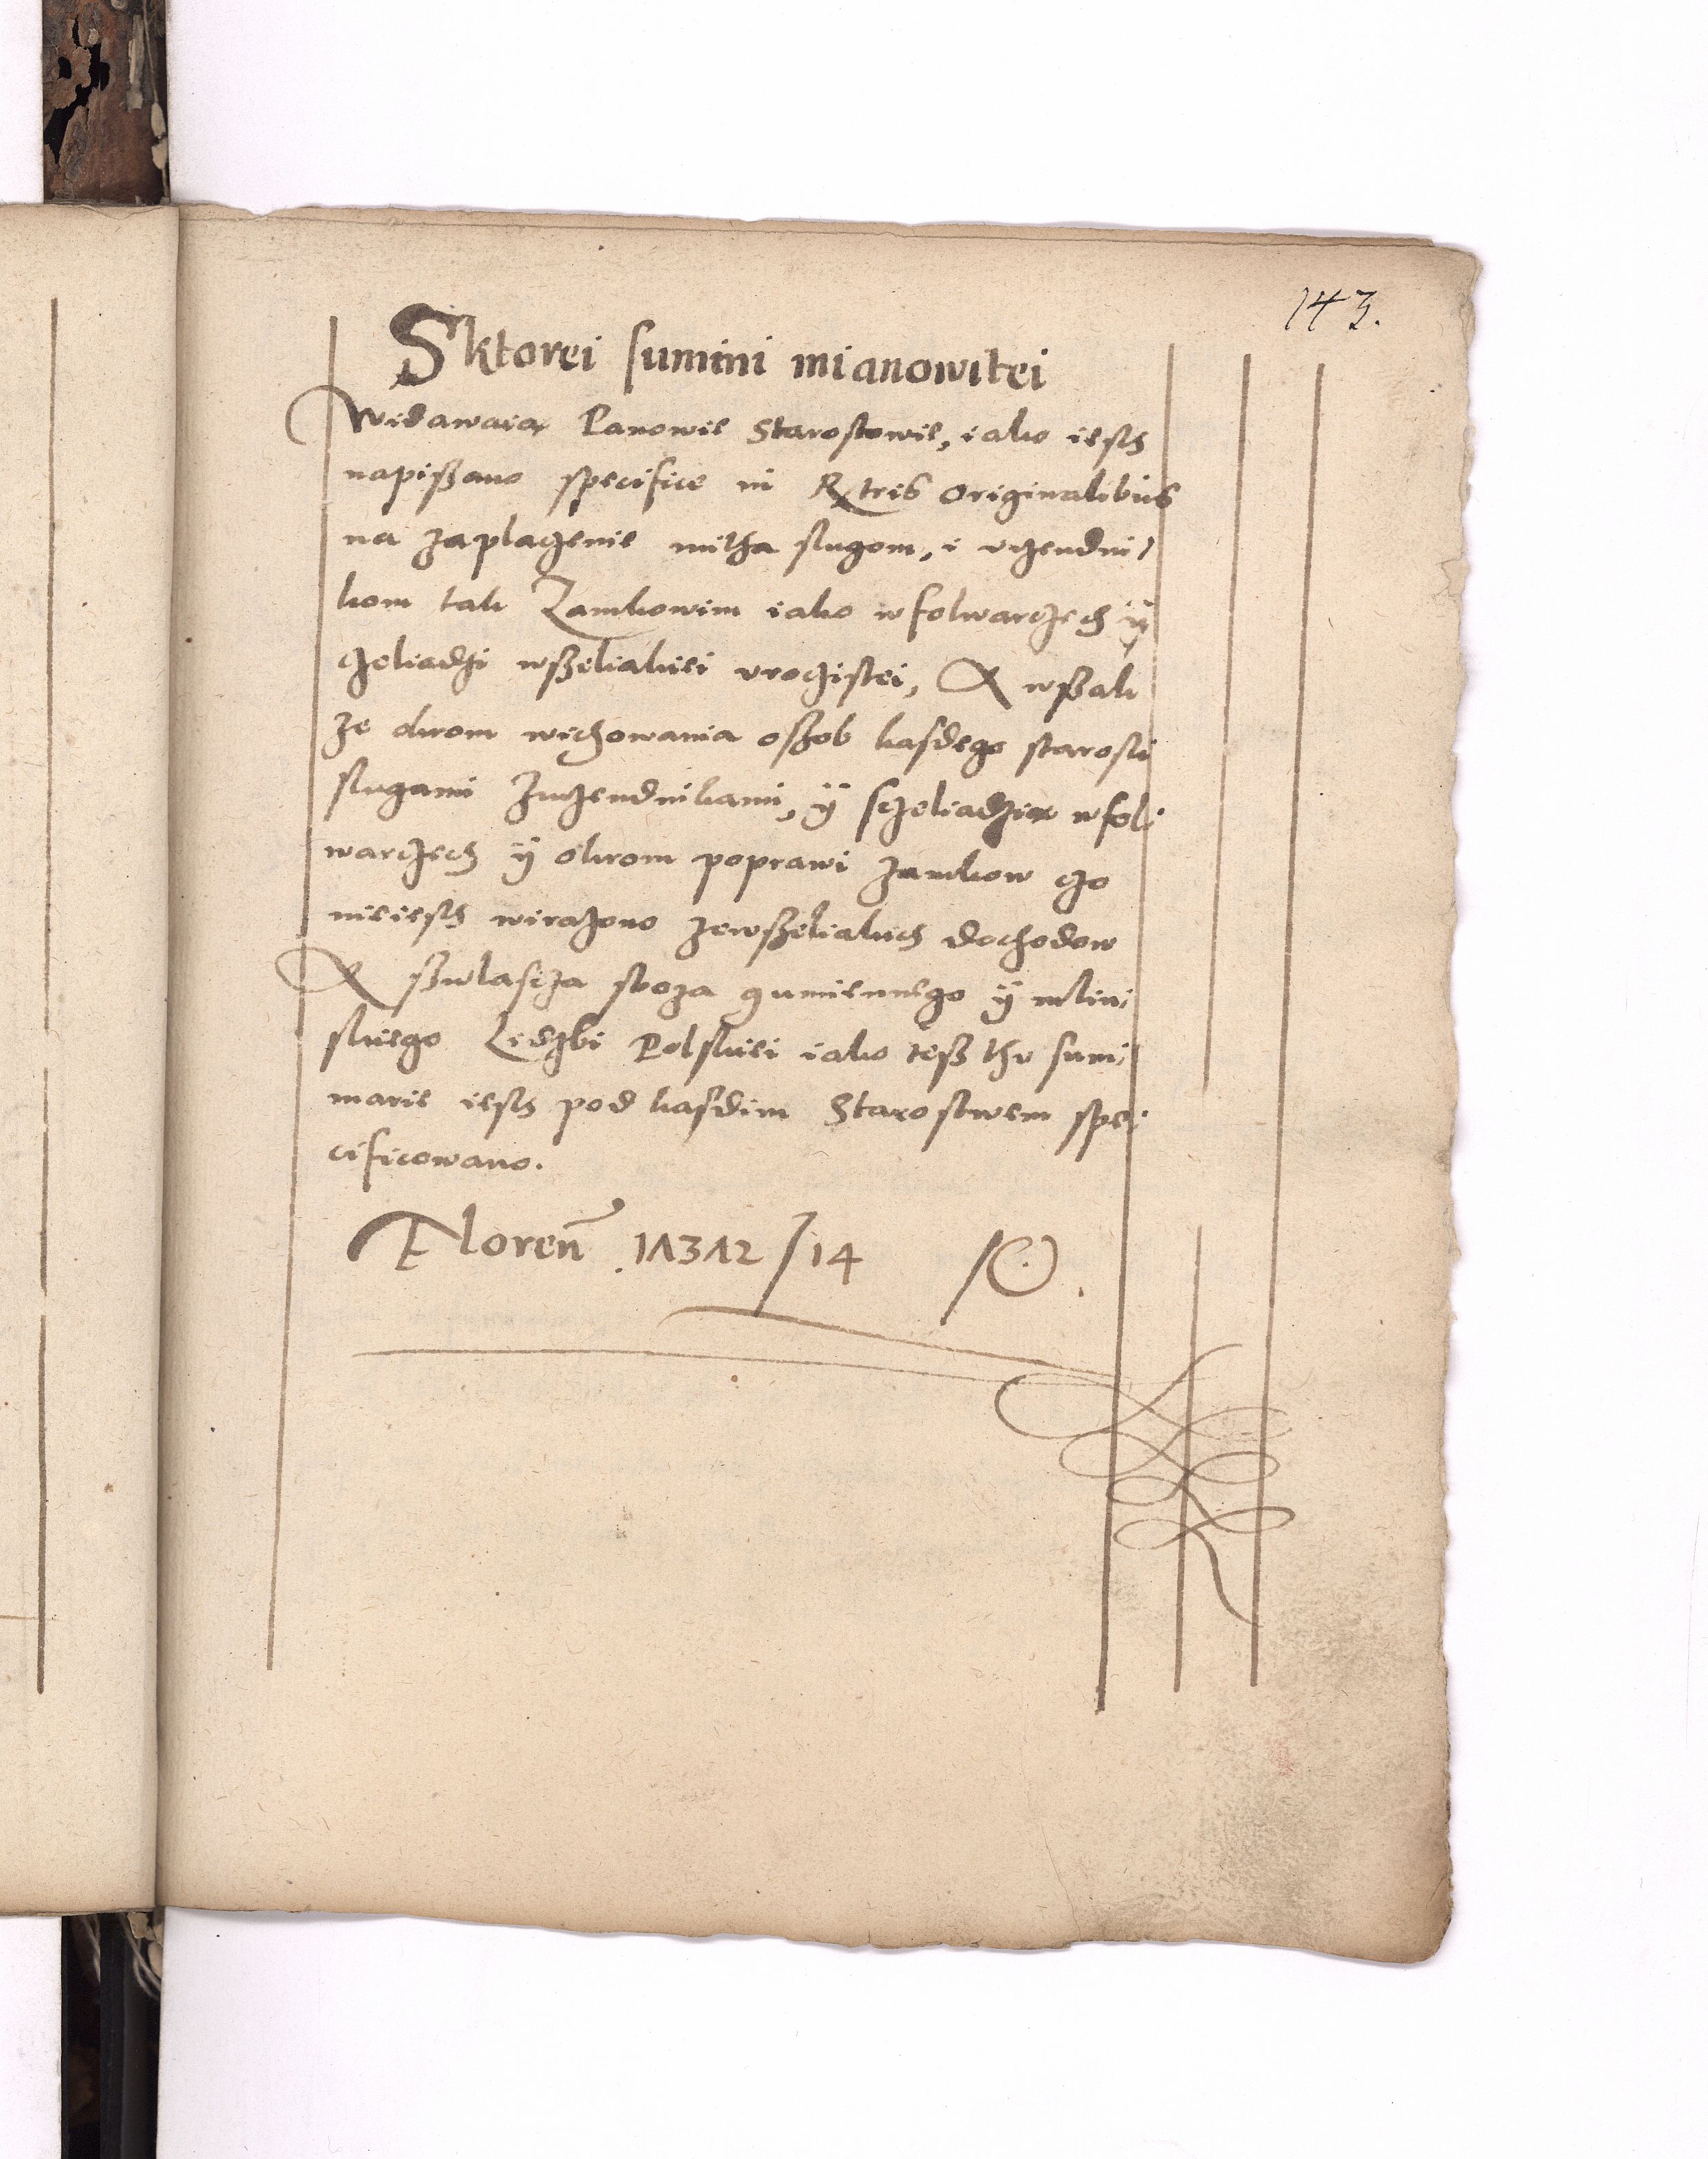 143.
Sktorei summi mianowitei
Widawaia Panowie Starostowie, iako iesth
napißano specifice in Rxtris Originalibus
na zaplaczenie mitha slugom, i vrzendni⸗
kom tak Zamkowim iako w folwarczech ÿ
czeliadzi wßeliakiei roczistei, A wßak
ze okrom wichowania oßob kasdego starosti
slugami zurzendnikami, ÿ sczeliadzia w fol⸗
warczech ÿ okrom poprawi zamkow czo
nieiesth wirazono zewßeliakich dochodow
A ßwlascza sboza gumiennego ÿ mlin⸗
skiego Liczbi Polskiei iako teß thu sum⸗
marie iesth pod kasdim Starostwem spe⸗
cificowano.
Floren 17372/14